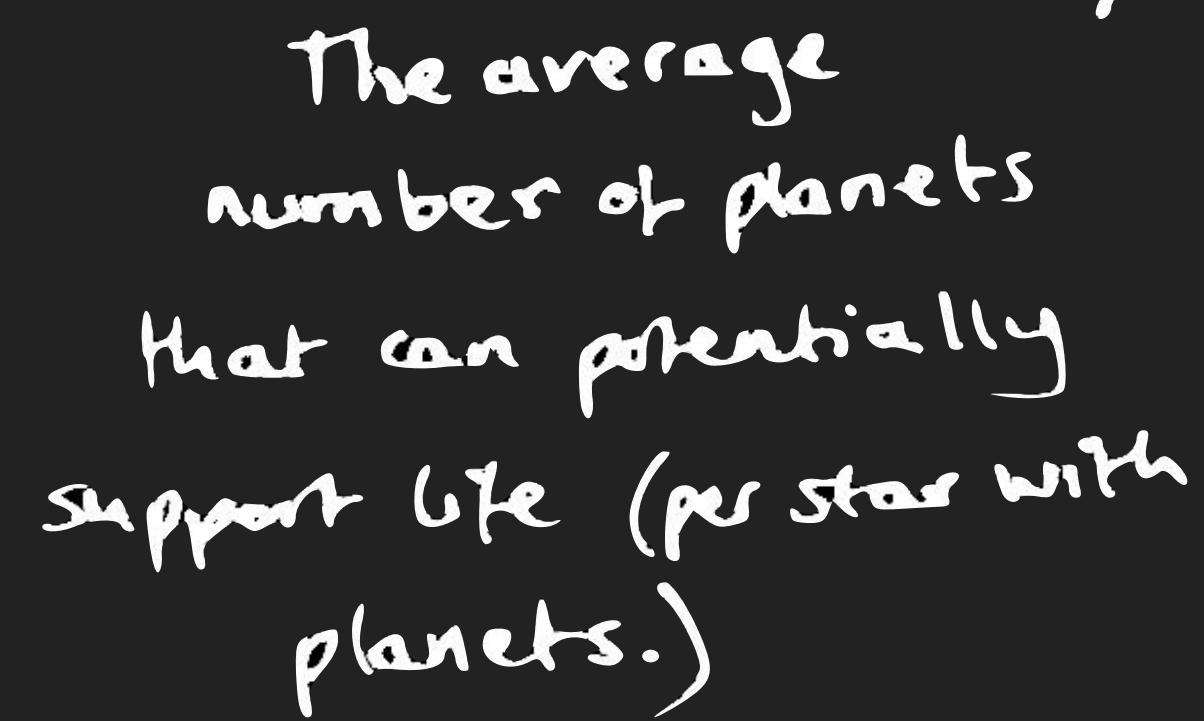 The average
number of planets
that can potentially
support life (per star with
planets.)